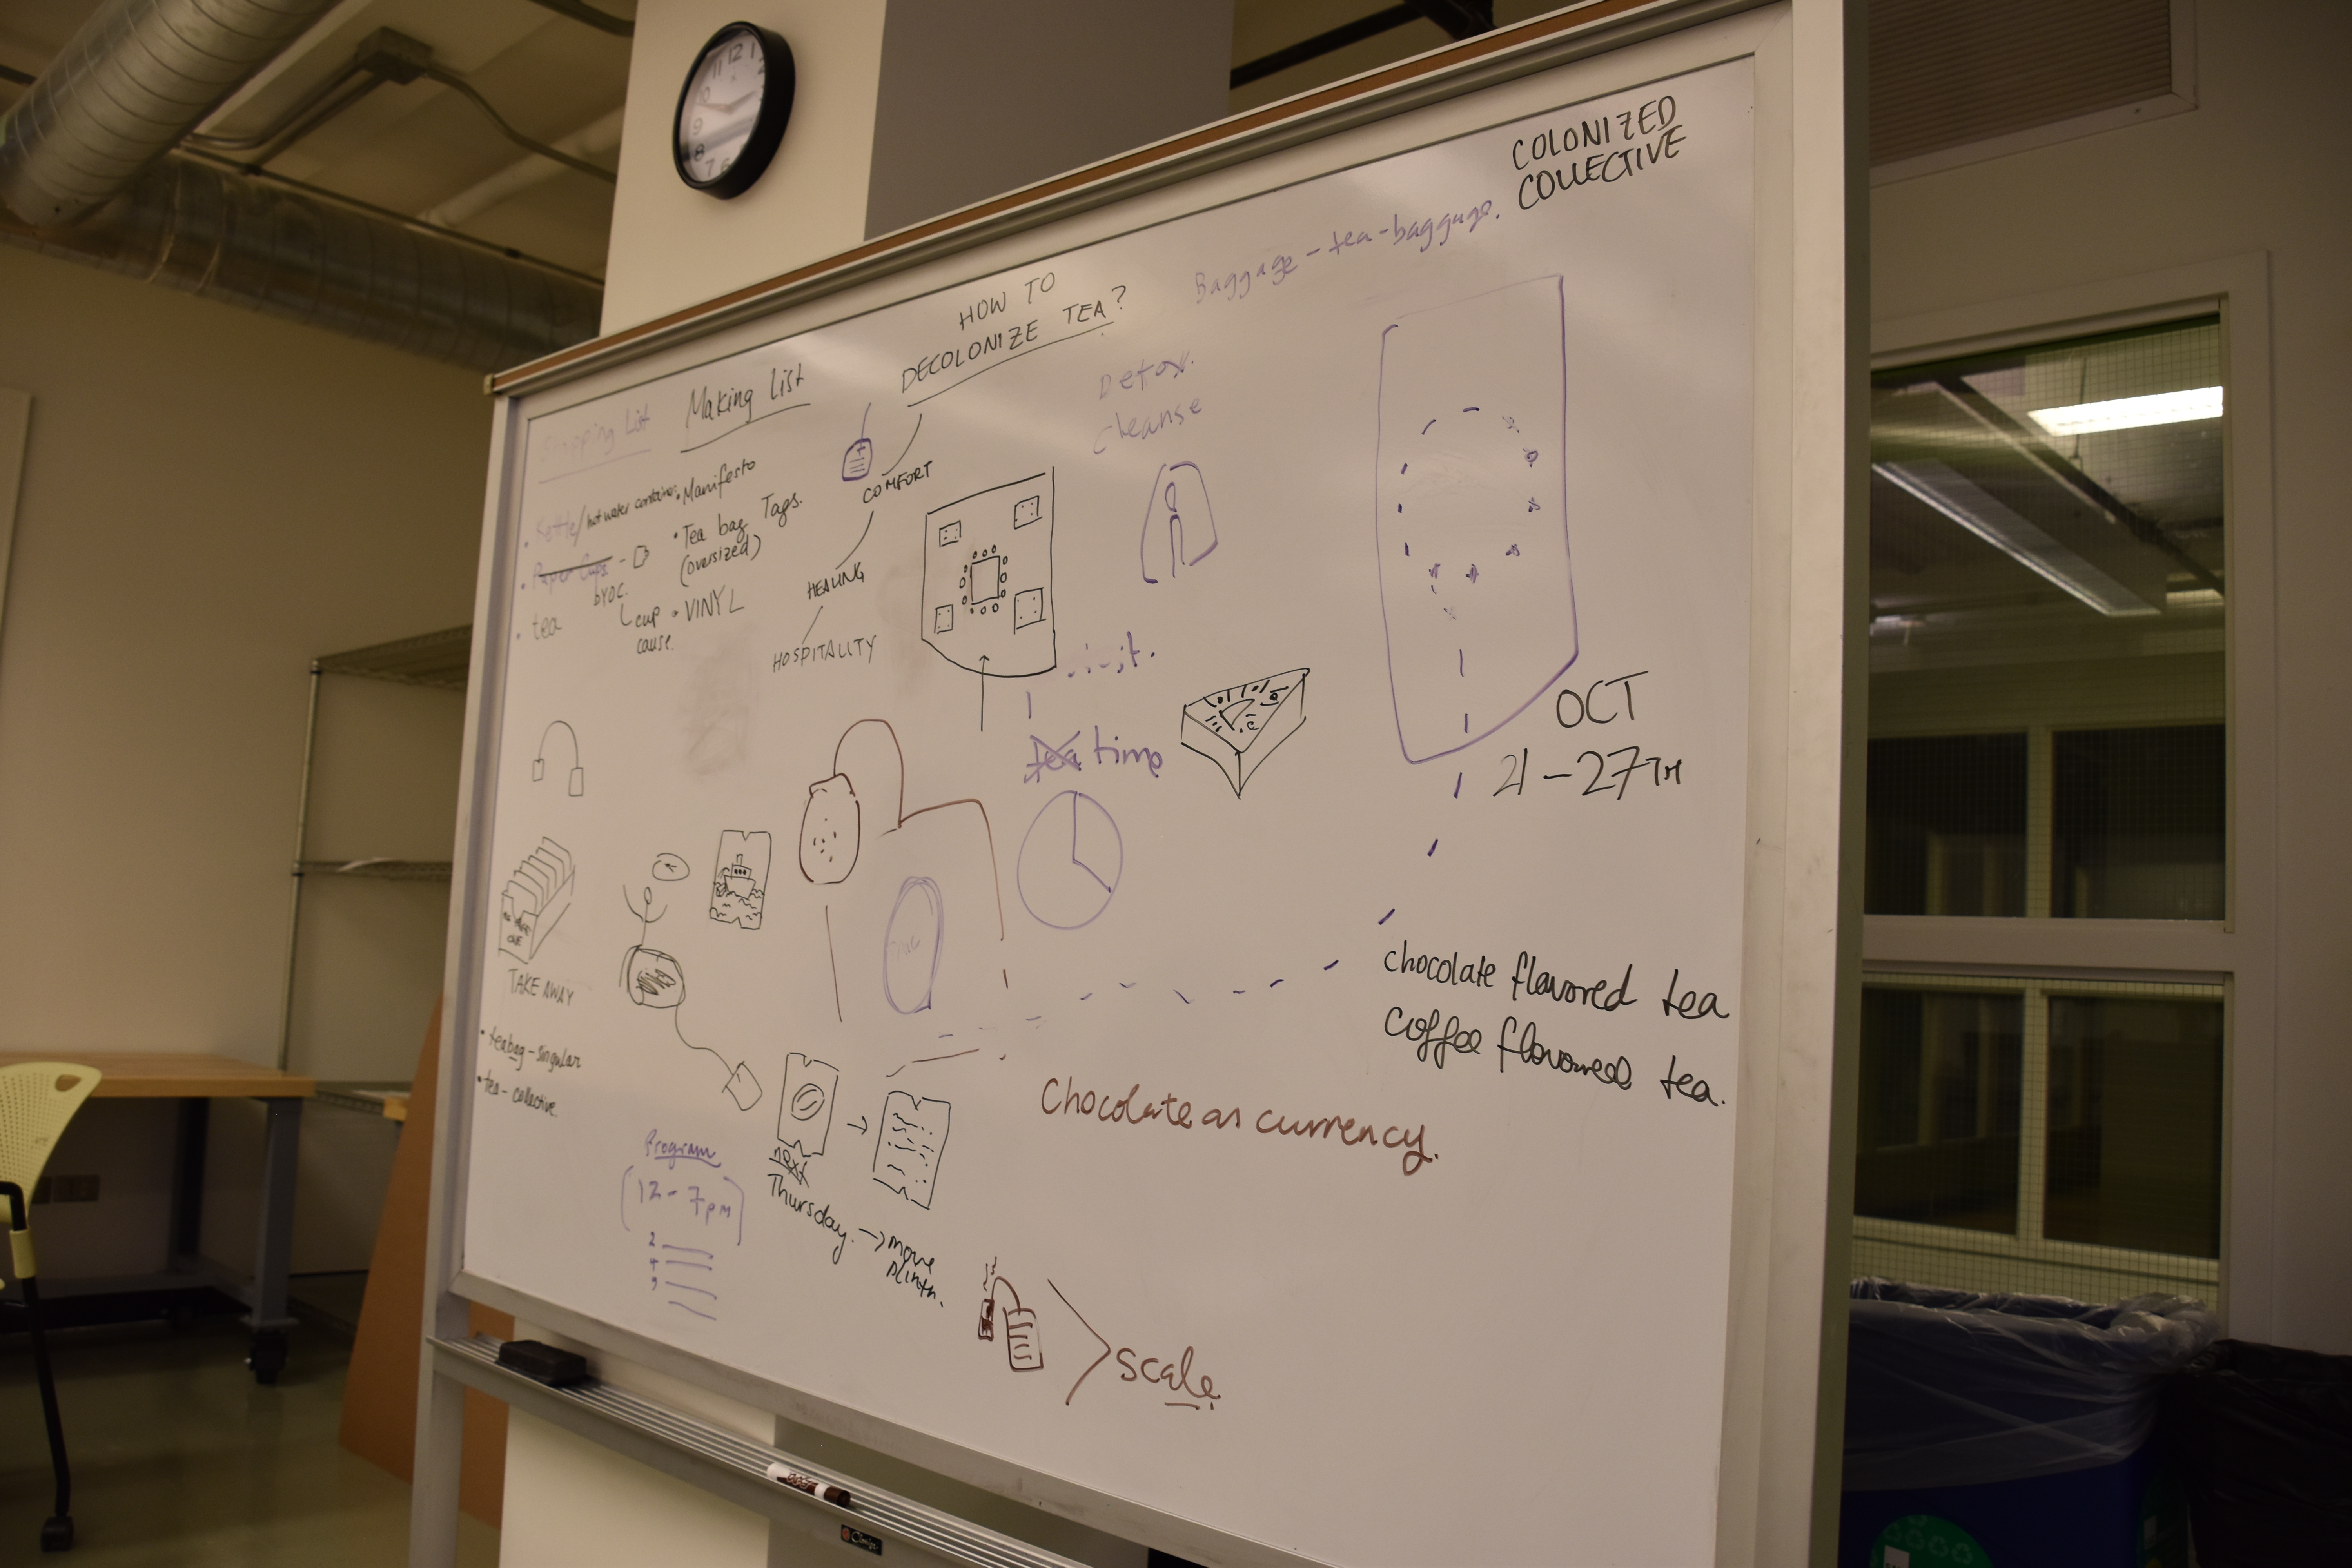 COLONIZED
COLLECTIVE
Baggage-tea-baggage.
HOW TO
DECOLONIZE TEA?
Detox.
cleanse
Shopping List
Making List
Kettle/hot water container
Manifesto
Paper Cups
BYOC.
Tea bag Tags.
(oversized)
tea
cup
cause.
VINYL
COMFORT
HEALING
HOSPITALITY
tea time
OCT
21-27TH
TAKE AWAY
teabag-singular
tea-collective.
chocolate flavored tea
coffee flavoured tea.
Chocolate as currency.
Program
12-7pm
2
4
next
Thursday. → move
plinth.
scale.
11 12 1
10
9
8
7 6